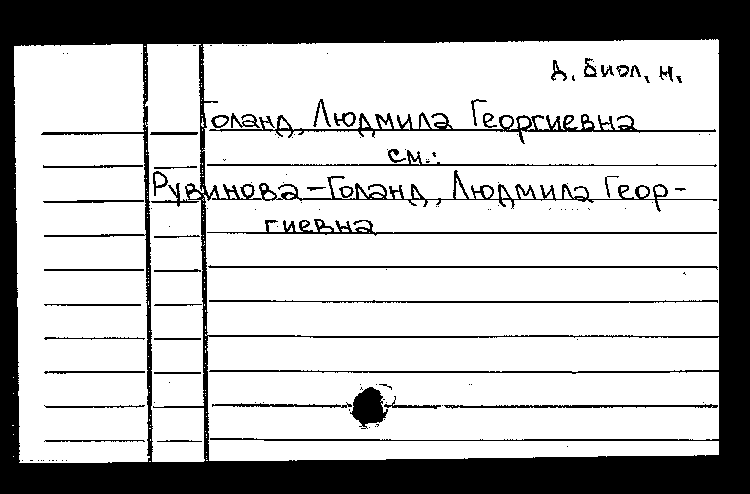 д. биол. н.
Голанд, Людмила Георгиевна
см.:
Рувинова-Голанд, Людмила Геор-
гиевна